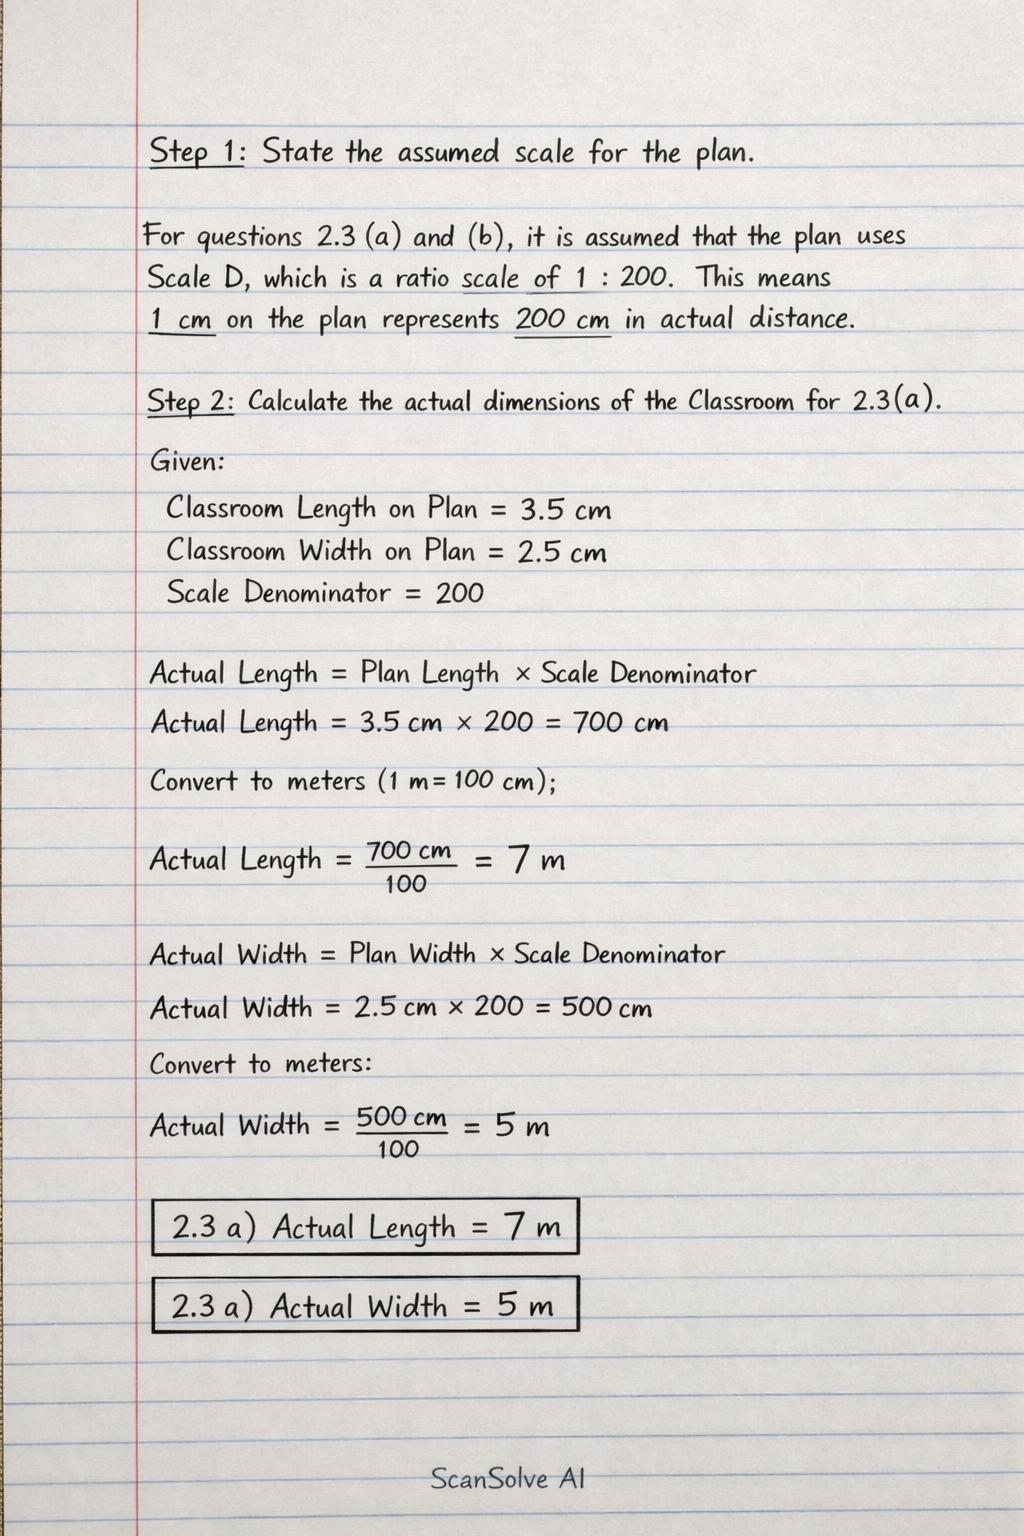 Step 1: State the assumed scale for the plan.
For questions 2.3 (a) and (b), it is assumed that the plan uses
Scale D, which is a ratio scale of 1 : 200. This means
1 cm on the plan represents 200 cm in actual distance.
Step 2: Calculate the actual dimensions of the Classroom for 2.3(a).
Given:
Classroom Length on Plan = 3.5 cm
Classroom Width on Plan = 2.5 cm
Scale Denominator = 200
Actual Length = Plan Length × Scale Denominator
Actual Length = 3.5 cm × 200 = 700 cm
Convert to meters (1 m = 100 cm);
Actual Length = 700 cm / 100 = 7 m
Actual Width = Plan Width × Scale Denominator
Actual Width = 2.5 cm × 200 = 500 cm
Convert to meters:
Actual Width = 500 cm / 100 = 5 m
2.3 a) Actual Length = 7 m
2.3 a) Actual Width = 5 m
ScanSolve AI